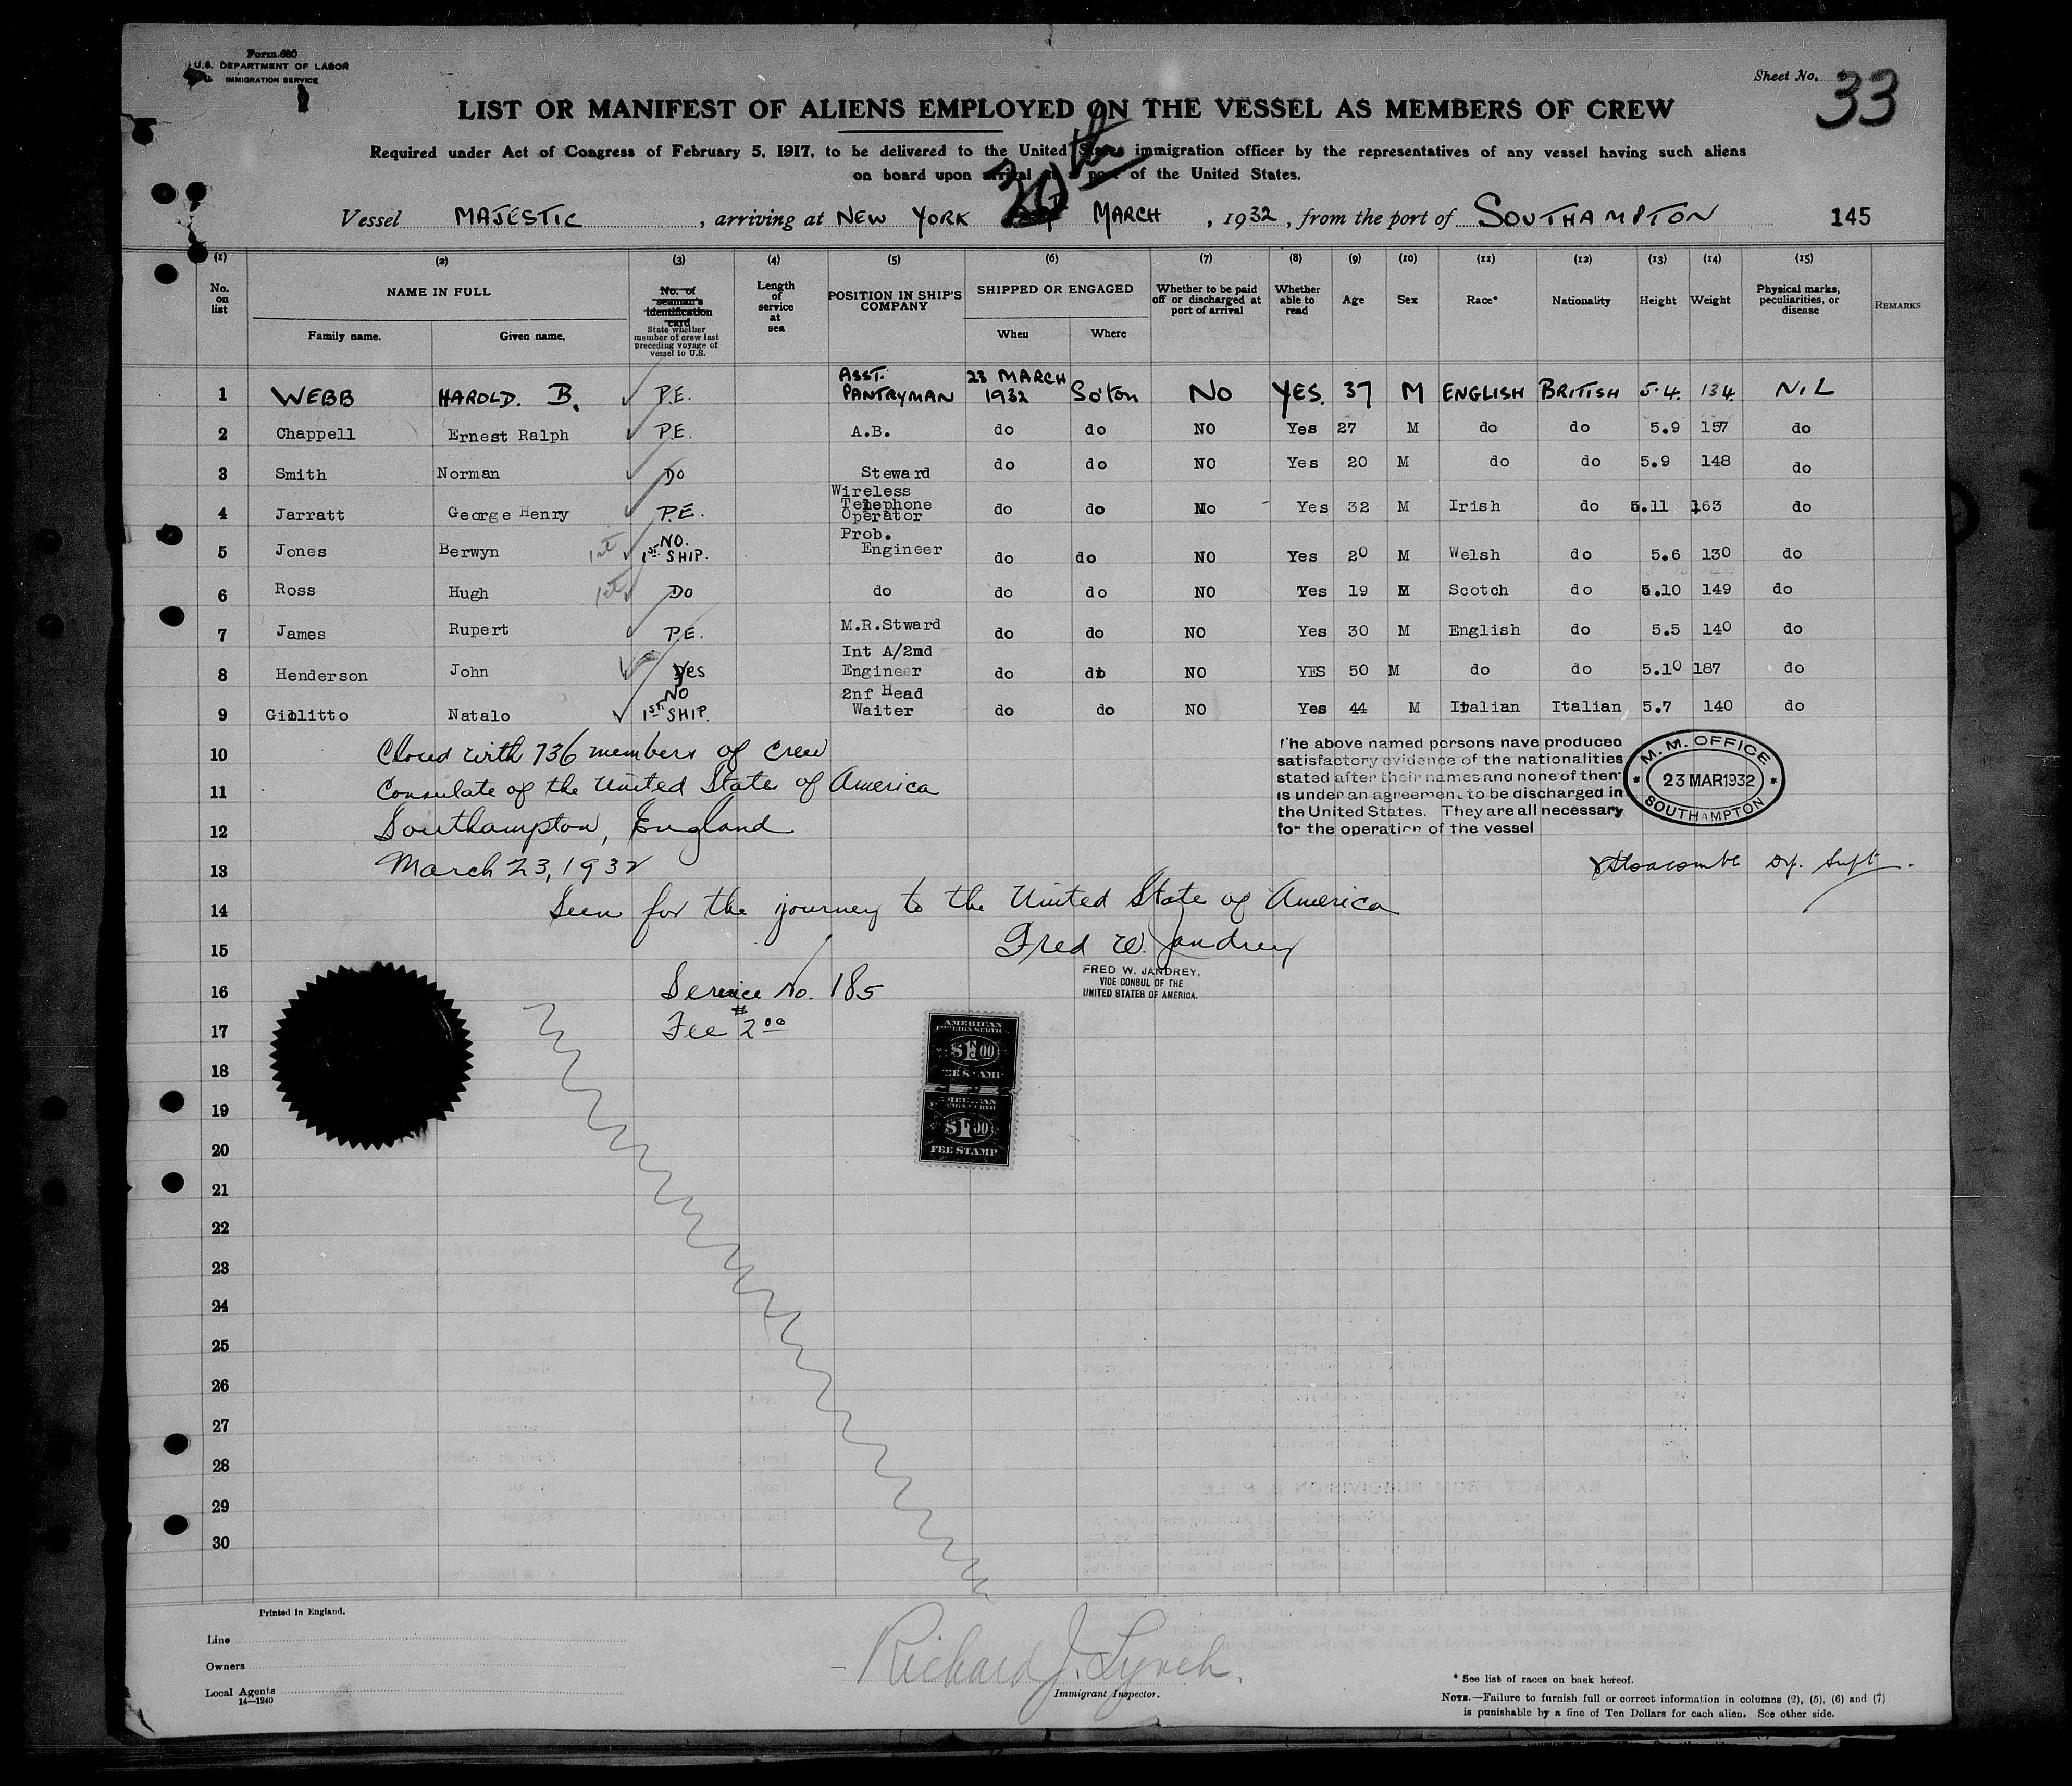 Form 680
U.S. DEPARTMENT OF LABOR
IMMIGRATION SERVICE
Sheet No. 33
LIST OR MANIFEST OF ALIENS EMPLOYED ON THE VESSEL AS MEMBERS OF CREW
Required under Act of Congress of February 5, 1917, to be delivered to the United States immigration officer by the representatives of any vessel having such aliens
on board upon arrival at a port of the United States.
Vessel MAJESTIC, arriving at NEW YORK MARCH, 1932, from the port of SOUTHAMPTON 145
(1) (2) (3) (4) (5) (6) (7) (8) (9) (10) (11) (12) (13) (14) (15)
No. on list NAME IN FULL Family name. Given name. No. of seaman's identification card State whether member of crew last preceding voyage of vessel to U.S. Length of service at sea POSITION IN SHIP'S COMPANY SHIPPED OR ENGAGED When Where Whether to be paid off or discharged at port of arrival Whether able to read Age Sex Race* Nationality Height Weight Physical marks, peculiarities, or disease REMARKS
1 WEBB HAROLD. B. P.E. ASST. PANTRYMAN 23 MARCH 1932 So'ton NO YES. 37 M ENGLISH BRITISH 5.4. 134. NIL
2 Chappell Ernest Ralph P.E. A.B. do do NO Yes 27 M do do 5.9 157 do
3 Smith Norman DO Steward do do NO Yes 20 M do do 5.9 148 do
4 Jarratt George Henry P.E. Wireless Telephone Operator do do No Yes 32 M Irish do 5.11 163 do
5 Jones Berwyn 1st NO. 1st SHIP. Prob. Engineer do do NO Yes 20 M Welsh do 5.6 130 do
6 Ross Hugh 1st DO do do do NO Yes 19 M Scotch do 5.10 149 do
7 James Rupert P.E. M.R.Stward do do NO Yes 30 M English do 5.5 140 do
8 Henderson John Yes Int A/2md Engineer do do NO YES 50 M do do 5.10 187 do
9 Giblitto Natalo NO 1st SHIP. 2nf Head Waiter do do NO Yes 44 M Italian Italian 5.7 140 do
10 Closed with 736 members of crew
11 Consulate of the United States of America
12 Southampton, England
13 March 23, 1932
The above named persons have produced
satisfactory evidence of the nationalities
stated after their names and none of them
is under an agreement to be discharged in
the United States. They are all necessary
for the operation of the vessel
M.M. OFFICE
23 MAR 1932
SOUTHAMPTON
Dy. Supt.
14 Seen for the journey to the United State of America
15 Fred W. Jandrey
FRED W. JANDREY,
VICE CONSUL OF THE
UNITED STATES OF AMERICA.
16 Service No. 185
17 Fee $2.00
AMERICAN
FOREIGN SERVICE
$1.00
FEE STAMP
AMERICAN
FOREIGN SERVICE
$1.00
FEE STAMP
18
19
20
21
22
23
24
25
26
27
28
29
30
Printed in England.
Line
Owners
Local Agents
14—1240
Richard J. Lynch.
Immigrant Inspector.
* See list of races on back hereof.
NOTE.—Failure to furnish full or correct information in columns (2), (5), (6) and (7)
is punishable by a fine of Ten Dollars for each alien. See other side.